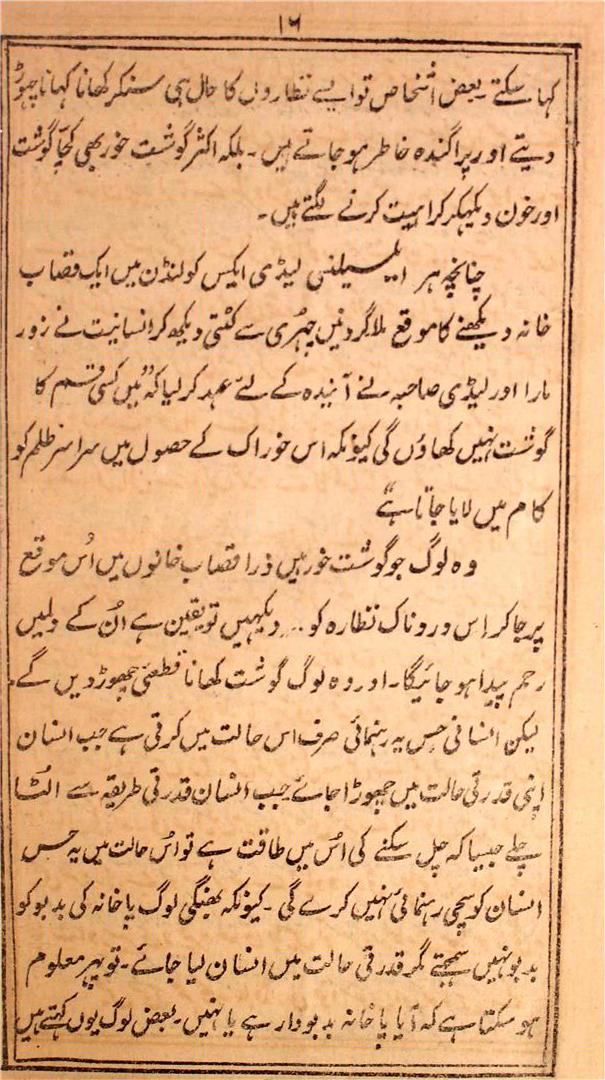 ۱۶
کہا سکتے۔ بعض اشخاص تو ایسے نظاروں کا حال ہی سنکر کھانا کہانا چہوڑ
دیتے اور پراگندہ خاطر ہو جاتے ہیں۔ بلکہ اکثر گوشت خور بھی کچّا گوشت
اور خون دیکہکر کراہیت کرنے لگتے ہیں۔
چنانچہ ہر ایکسیلنسی لیڈی ایکس کو لنڈن میں ایک قصاب
خانہ دیکھنے کا موقع ملا گردنیں چہُری سے کٹتی دیکھ کر انسانیت نے زور
مارا اور لیڈی صاحبہ نے آیندہ کے لئے عہد کر لیا کہ "میں کسی قسم کا
گوشت نہیں کھاؤں گی کیونکہ اس خوراک کے حصول میں سراسر ظلم کو
کام میں لایا جاتا ہے"
وہ لوگ جو گوشت خور ہیں ذرا قصاب خانوں میں اُس موقع
پر جا کر اِس دردناک نظارہ کو ... دیکہیں تو یقین ہے اُن کے دلمیں
رحم پیدا ہو جائیگا۔ اور وہ لوگ گوشت کھانا قطعی چھوڑ دیں گے۔
لیکن انسانی حِس یہ رہنمائی صرف اس حالت میں کرتی ہے جب انسان
اپنی قدرتی حالت میں چھوڑا جائے جب انسان قدرتی طریقہ سے الٹا
چلے جیسا کہ چل سکنے کی اُس میں طاقت ہے تو اُس حالت میں یہ حس
انسان کو سچی رہنمائی نہیں کرے گی۔ کیونکہ بھنگی لوگ پاخانہ کی بدبو کو
بدبو نہیں سمجتے مگر قدرتی حالت میں انسان لیا جائے۔ تو پہر معلوم
ہو سکتا ہے کہ آیا پاخانہ بدبودار ہے یا نہیں۔ بعض لوگ یوں کہتے ہیں